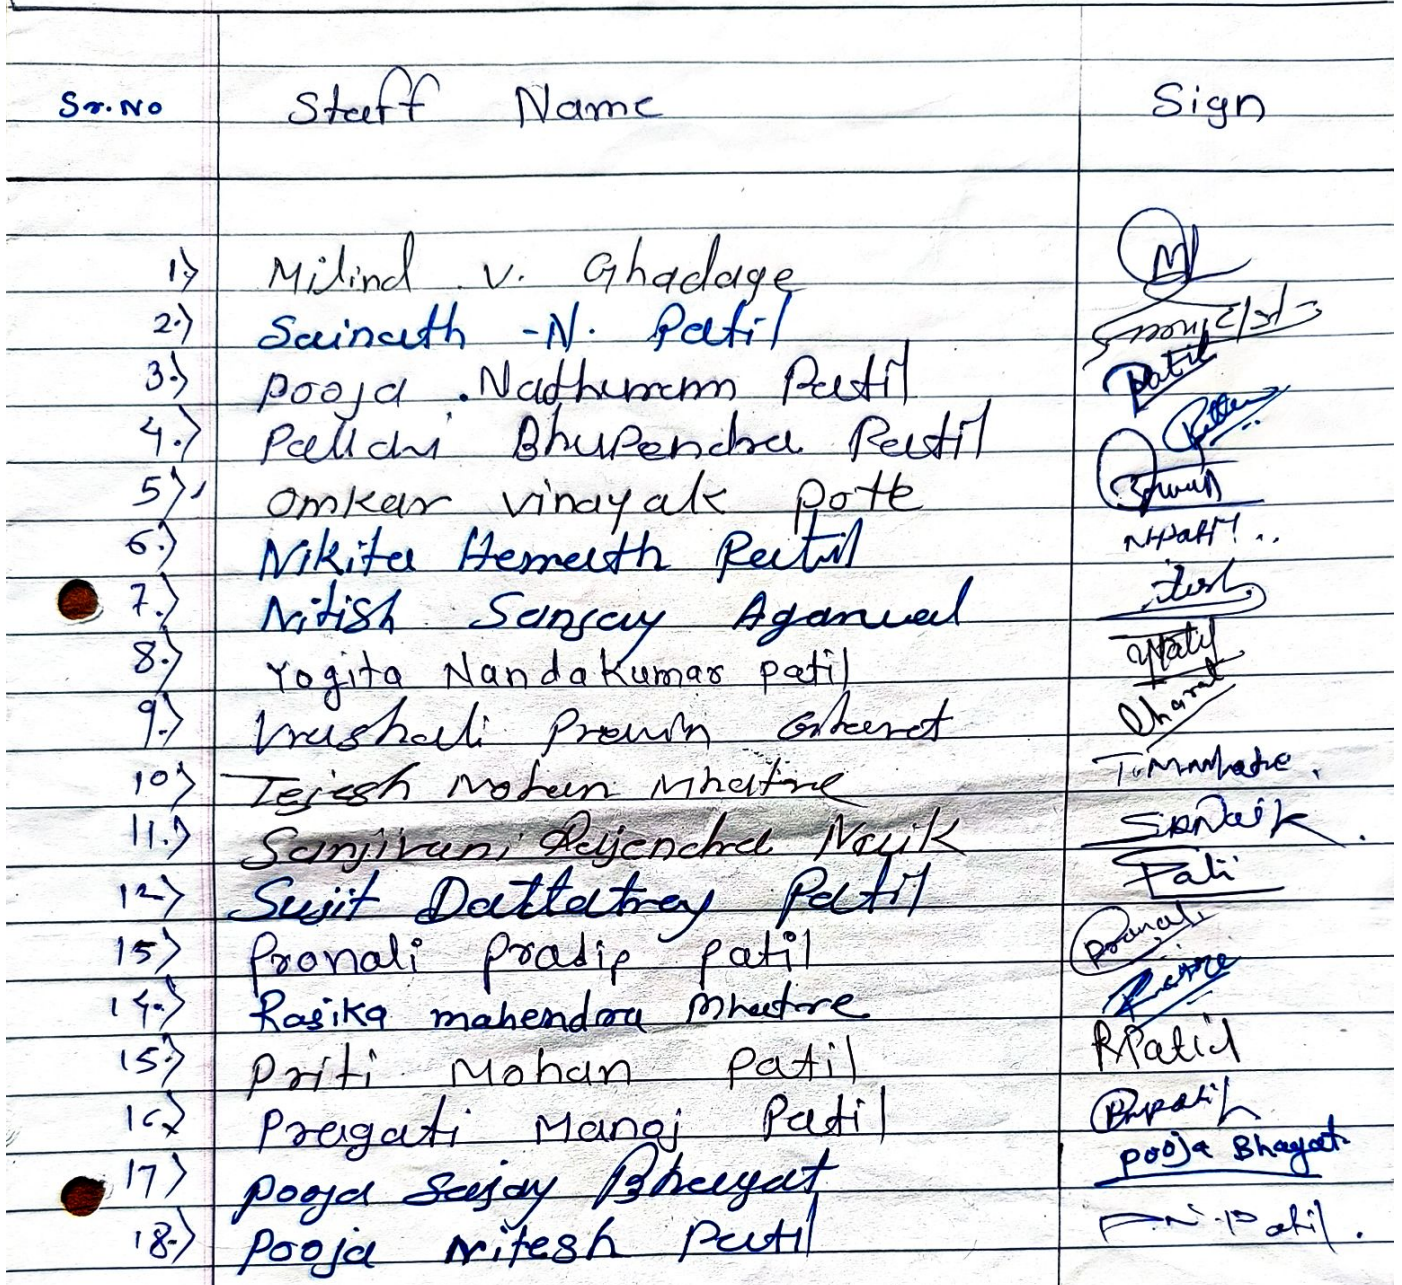 Sr.No Staff Name Sign
1) Milind V. Ghadage
2.) Sainath -N. Patil
3.) Pooja . Nathuram Patil Patil
4.) Pallavi Bhupendra Patil
5) Omkar Vinayak Pote
6.) Nikita Hemath Patil N.Patil..
7.) Nitish Sanjay Agarwal
8.) Yogita Nandakumar Patil YPatil
9.) Vrushali Pravin Gharat Gharat
10) Tejesh Mohan Mhatre T.M.Mhatre.
11.) Sanjivani Rajendra Naik S.R.Naik.
12) Sujit Dattatray Patil Patil
15) Pronali Pradip Patil Pranali
14.) Rasika mahendra Mhatre
15.) Priti Mohan Patil PPatil
16) Pragati Manoj Patil PMPatil
17) Pooja Sajay Bhagat Pooja Bhagat
18.) Pooja Nitesh Patil P.N.Patil.